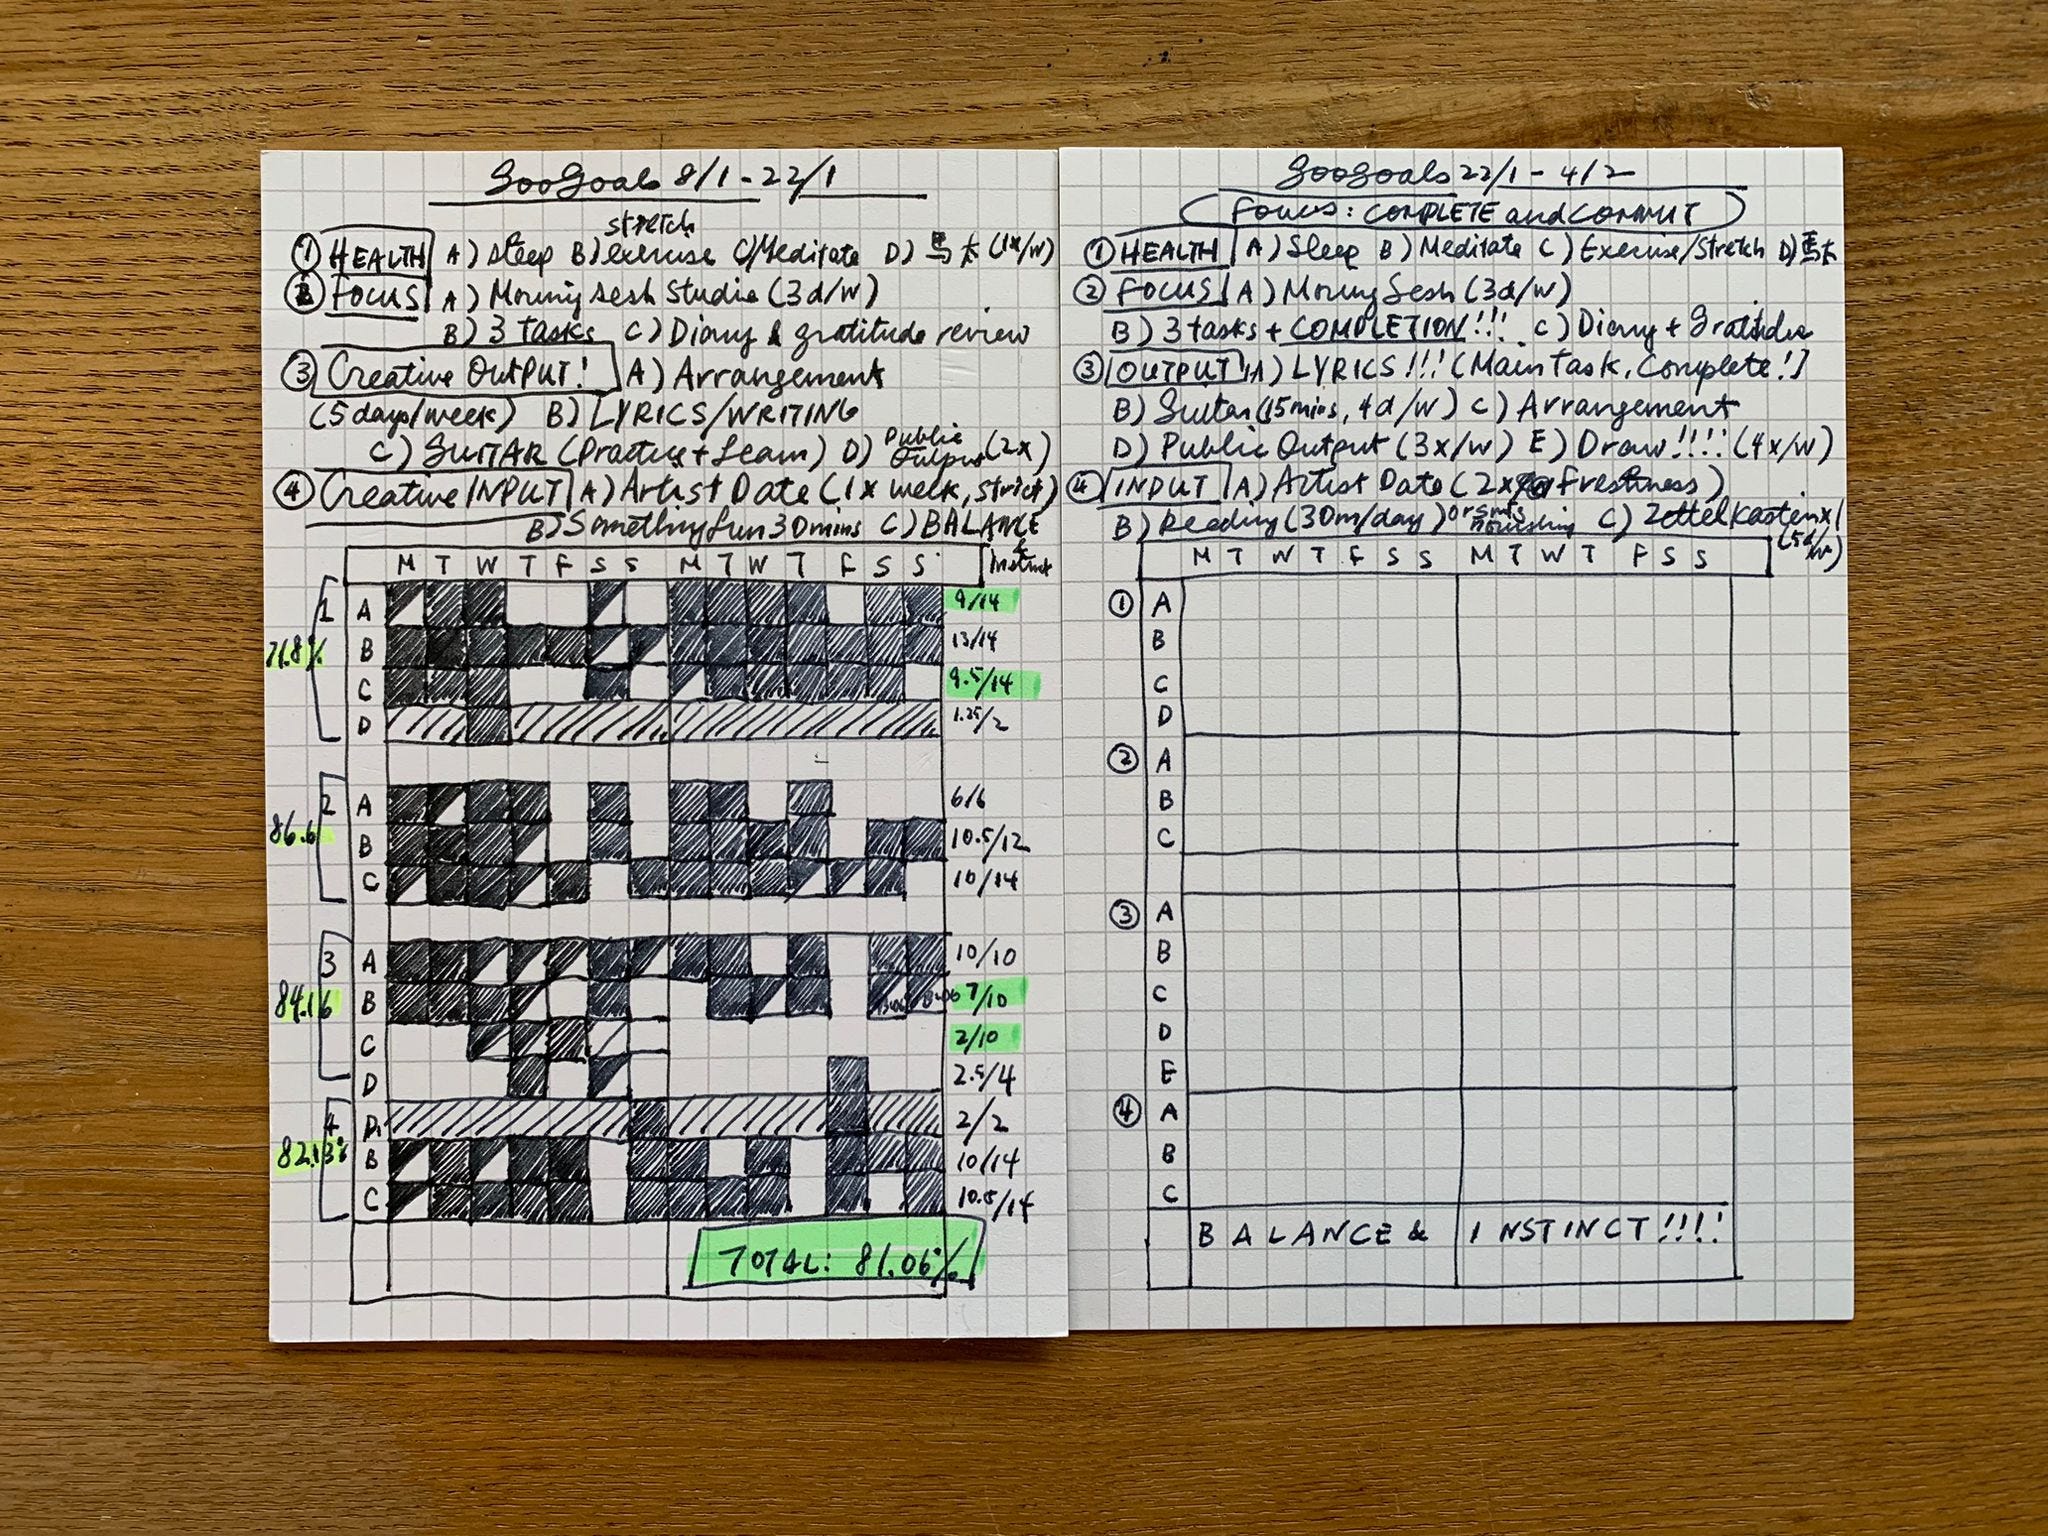 GooGoals 8/1-22/1
stretch
① HEALTH A) Sleep B) exercise C) Meditate D) (1x/w)
② FOCUS A) Morning sesh Studio (3d/w)
B) 3 tasks C) Diary & gratitude review
③ Creative OUTPUT! A) Arrangement
(5 days/week) B) LYRICS/WRITING
C) GUITAR (Practice + Learn) D) Public Output (2x)
④ Creative INPUT A) Artist Date (1x week, strict)
B) Something fun 30mins C) BALANCE & Instinct
M T W T F S S M T W T F S S
1 A 9/14
B 13/14
71.8%
C 9.5/14
D 1.25/2
2 A 6/6
86.6 B 10.5/12
C 10/14
3 A 10/10
84.16 B 7/10
C 2/10
D 2.5/4
4 2/2
82.13% B 10/14
C 10.5/14
TOTAL: 81.06%
GooGoals 22/1 - 4/2
FOCUS: COMPLETE and COMMIT
① HEALTH A) Sleep B) Meditate C) Exercise/Stretch D)
② FOCUS A) Morning Sesh (3d/w)
B) 3 tasks + COMPLETION!!! C) Diary + Gratitude
③ OUTPUT A) LYRICS!!! (Main Task, Complete!)
B) Guitar (15mins, 4d/w) C) Arrangement
D) Public Output (3x/w) E) Draw!!!! (4x/w)
④ INPUT A) Artist Date (2x Freshness)
B) Reading (30m/day) or smth nourishing C) Zettelkasten x1 (5d/w)
M T W T F S S M T W T F S S
① A
B
C
D
② A
B
C
③ A
B
C
D
E
④ A
B
C
BALANCE & INSTINCT!!!!